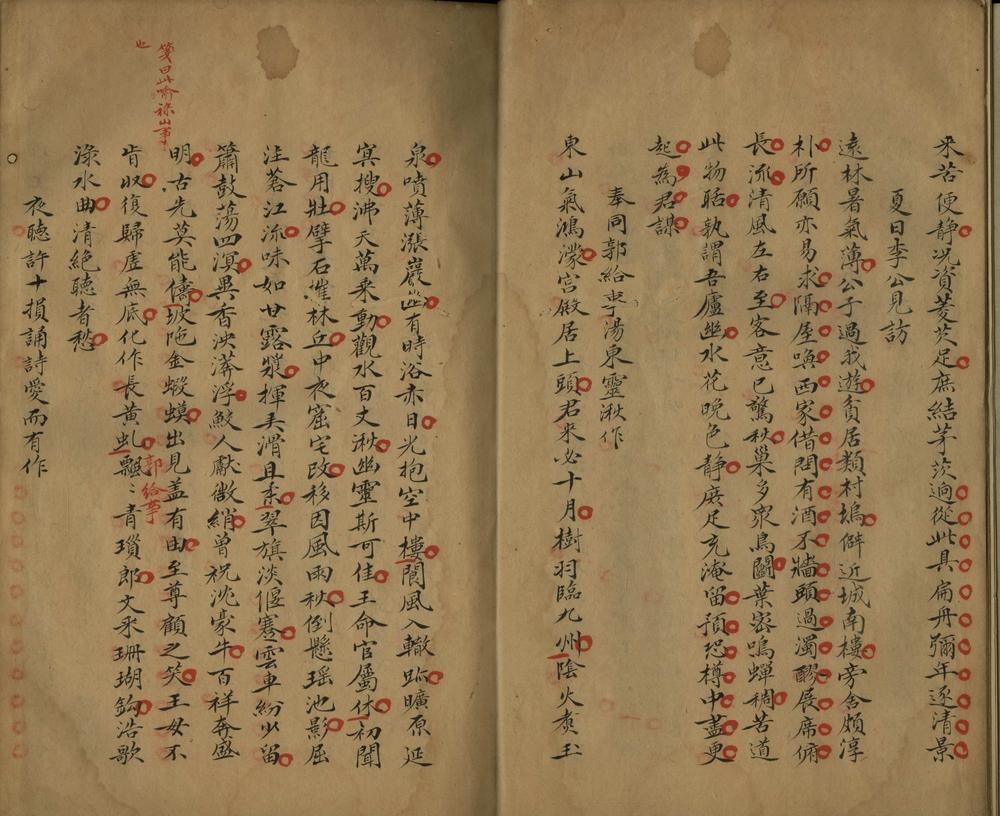 來苦便靜况資菱芡足庶結茅茨迥從此具扁舟彌年逐清景
夏日李公見訪
遠林暑氣薄公子過我遊貧居類村塢僻近城南樓旁舍頗淳
朴所願亦易求隔屋喚西家借問有酒不牆頭過濁醪展席俯
長流清風左右至客意已驚秋巢多衆鳥鬭葉密鳴蟬稠苦道
此物聒孰謂吾廬幽水花晚色靜庶足充淹留預恐樽中盡更
起為君謀
奉同郭給事湯東靈湫作
東山氣鴻濛宮殿居上頭君來必十月樹羽臨九州陰火煮玉
泉噴薄漲巖幽有時浴赤日光抱空中樓閬風入轍跡曠原延
冥搜沸天萬乘動觀水百丈湫幽靈斯可佳王命官屬休初聞
龍用壯擘石摧林丘中夜窟宅改移因風雨秋倒懸瑤池影屈
注蒼江流味如甘露漿揮弄滑且柔翠旗淡偃蹇雲車紛少留
簫鼓蕩四溟異香泱漭浮鮫人獻微綃曾祝沈豪牛百祥奔盛
明古先莫能儔坡陁金蝦蟆出見盖有由至尊顧之笑王母不
肯収復歸虛無底化作長黄虬飄〻青瑣郎文采珊瑚鈎浩歌
淥水曲清絕聽者愁
夜聽許十損誦詩愛而有作
箋曰此喻祿山事
也
郭給事